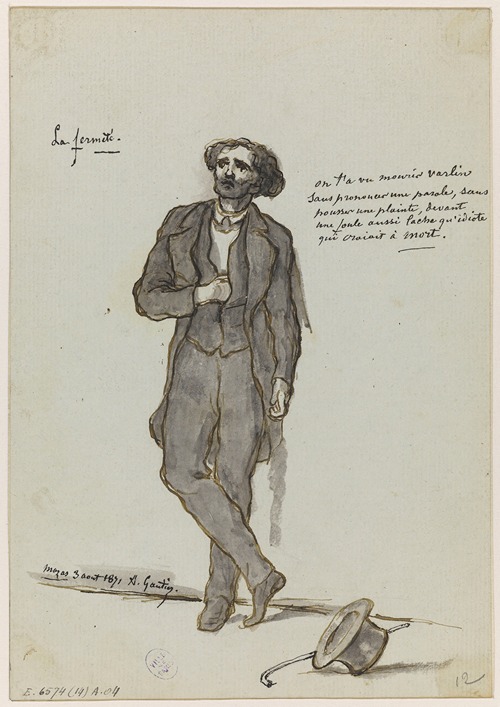 La fermeté.
on t'a vu mourir varlin
sans prononcer une parole, sans
pousser une plainte, devant
une foule aussi lache qu'idiote
qui criait à mort.
mazas 3 aout 1871 A. Gautier.
E. 6574 (14) A. 04
12